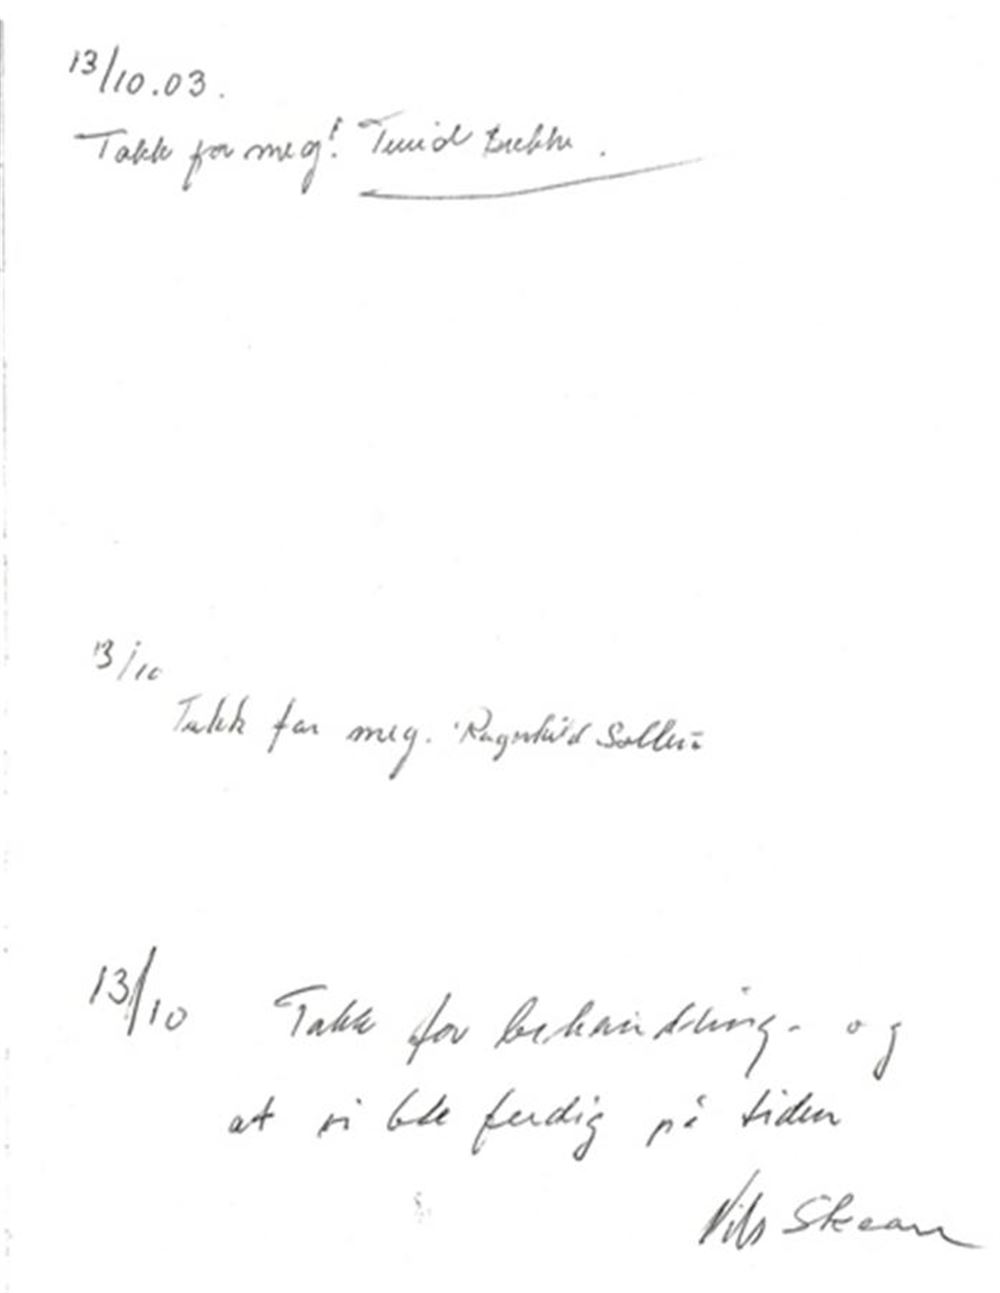 13/10.03.
Takk for meg! Turid Brekke.
13/10
Takk for meg. Ragnhild
13/10 Takk for behandling - og
at vi ble ferdig på tiden
Nils